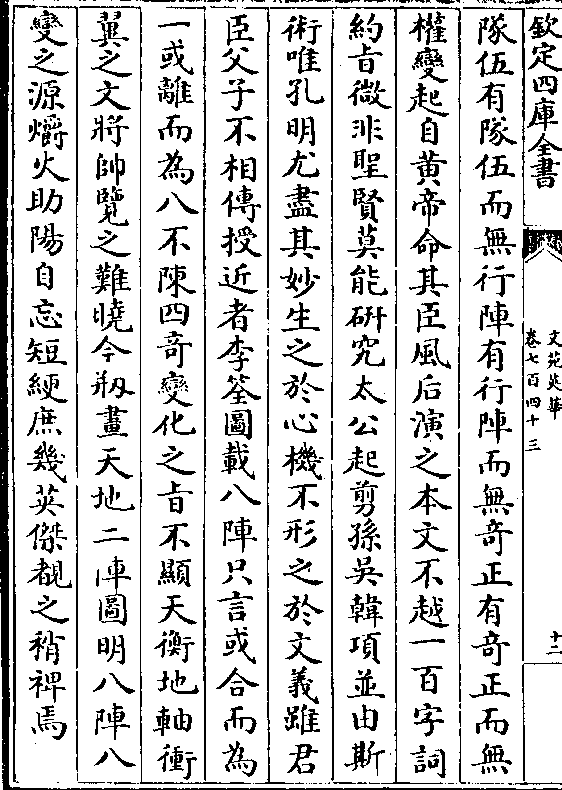 欽定四庫全書
文苑英華
卷七百四十三
十二
隊伍有隊伍而無行陣有行陣而無竒正有竒正而無
權變起自黄帝命其臣風后演之本文不越一百字詞
約㫖微非聖賢莫能研究太公起剪孫吳韓項並由斯
術唯孔明尤盡其妙生之於心機不形之於文義雖君
臣父子不相傳授近者李筌圖載八陣只言或合而為
一或離而為八不陳四竒變化之㫖不顯天衡地軸衝
翼之文將帥覽之難曉今剏畫天地二陣圖明八陣八
變之源爝火助陽自忘短綆庶幾英傑覩之稍裨焉